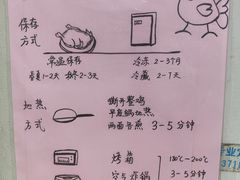 保存
方式
常温保存
春夏1-2天 秋冬2-3天
冷冻 2-3个月
冷藏 2-7天
加热
方式
撕开整鸡
平底锅加热
两面各煎 3-5分钟
烤箱
180℃-200℃
空气炸锅
3-5分钟